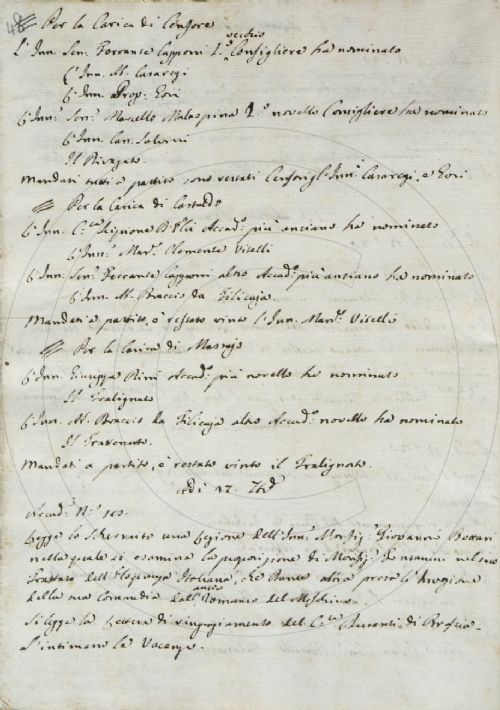 48
Per la Carica di Censore
L'Inn. Sen. Ferrante Capponi 1.° vecchio Consigliere ha nominato
l'Inn. Ab. Casaregi
l'Inn. Prop. Gori
l'Inn. Sen. Marcello Malaspina 1.° novello Consigliere ha nominato
l'Inn. Can. Salvini
Il Rivestito.
Mandati tutti a partito sono restati Censori gl'Inn. Casaregi, e Gori.
Per la Carica di Castaldo
l'Inn. Accad. più anziano ha nominato
l'Inn. Mar. Clemente Vitelli
l'Inn. Sen. Ferrante Capponi altro Accad. più anziano ha nominato
l'Inn. Ab. Braccio da Filicaja.
Mandati a partito, è restato vinto l'Inn. Mar. Vitelli
Per la Carica di Massajo
l'Inn. Giuseppe Accad. più novello ha nominato
Il Tralignato
l'Inn. Ab. Braccio da Filicaja altro Accad. novello ha nominato
Il Trattenuto.
Mandati a partito, è restato vinto il Tralignato.
Adì 17.
Accad. N.
Legge lo Schermito una Lezione dell'Inn. Monsig. Giovanni Bottari
nella quale si esamina la proposizione di Monsig. Fontanini nel suo
Trattato dell'Eloquenza Italiana, che Dante abbia preso l'Invenzione
della sua Commedia dall'antico Romanzo del Meschino.
Si legge la Lettera di ringraziamento del di Brescia.
S'intimano le Vacanze.